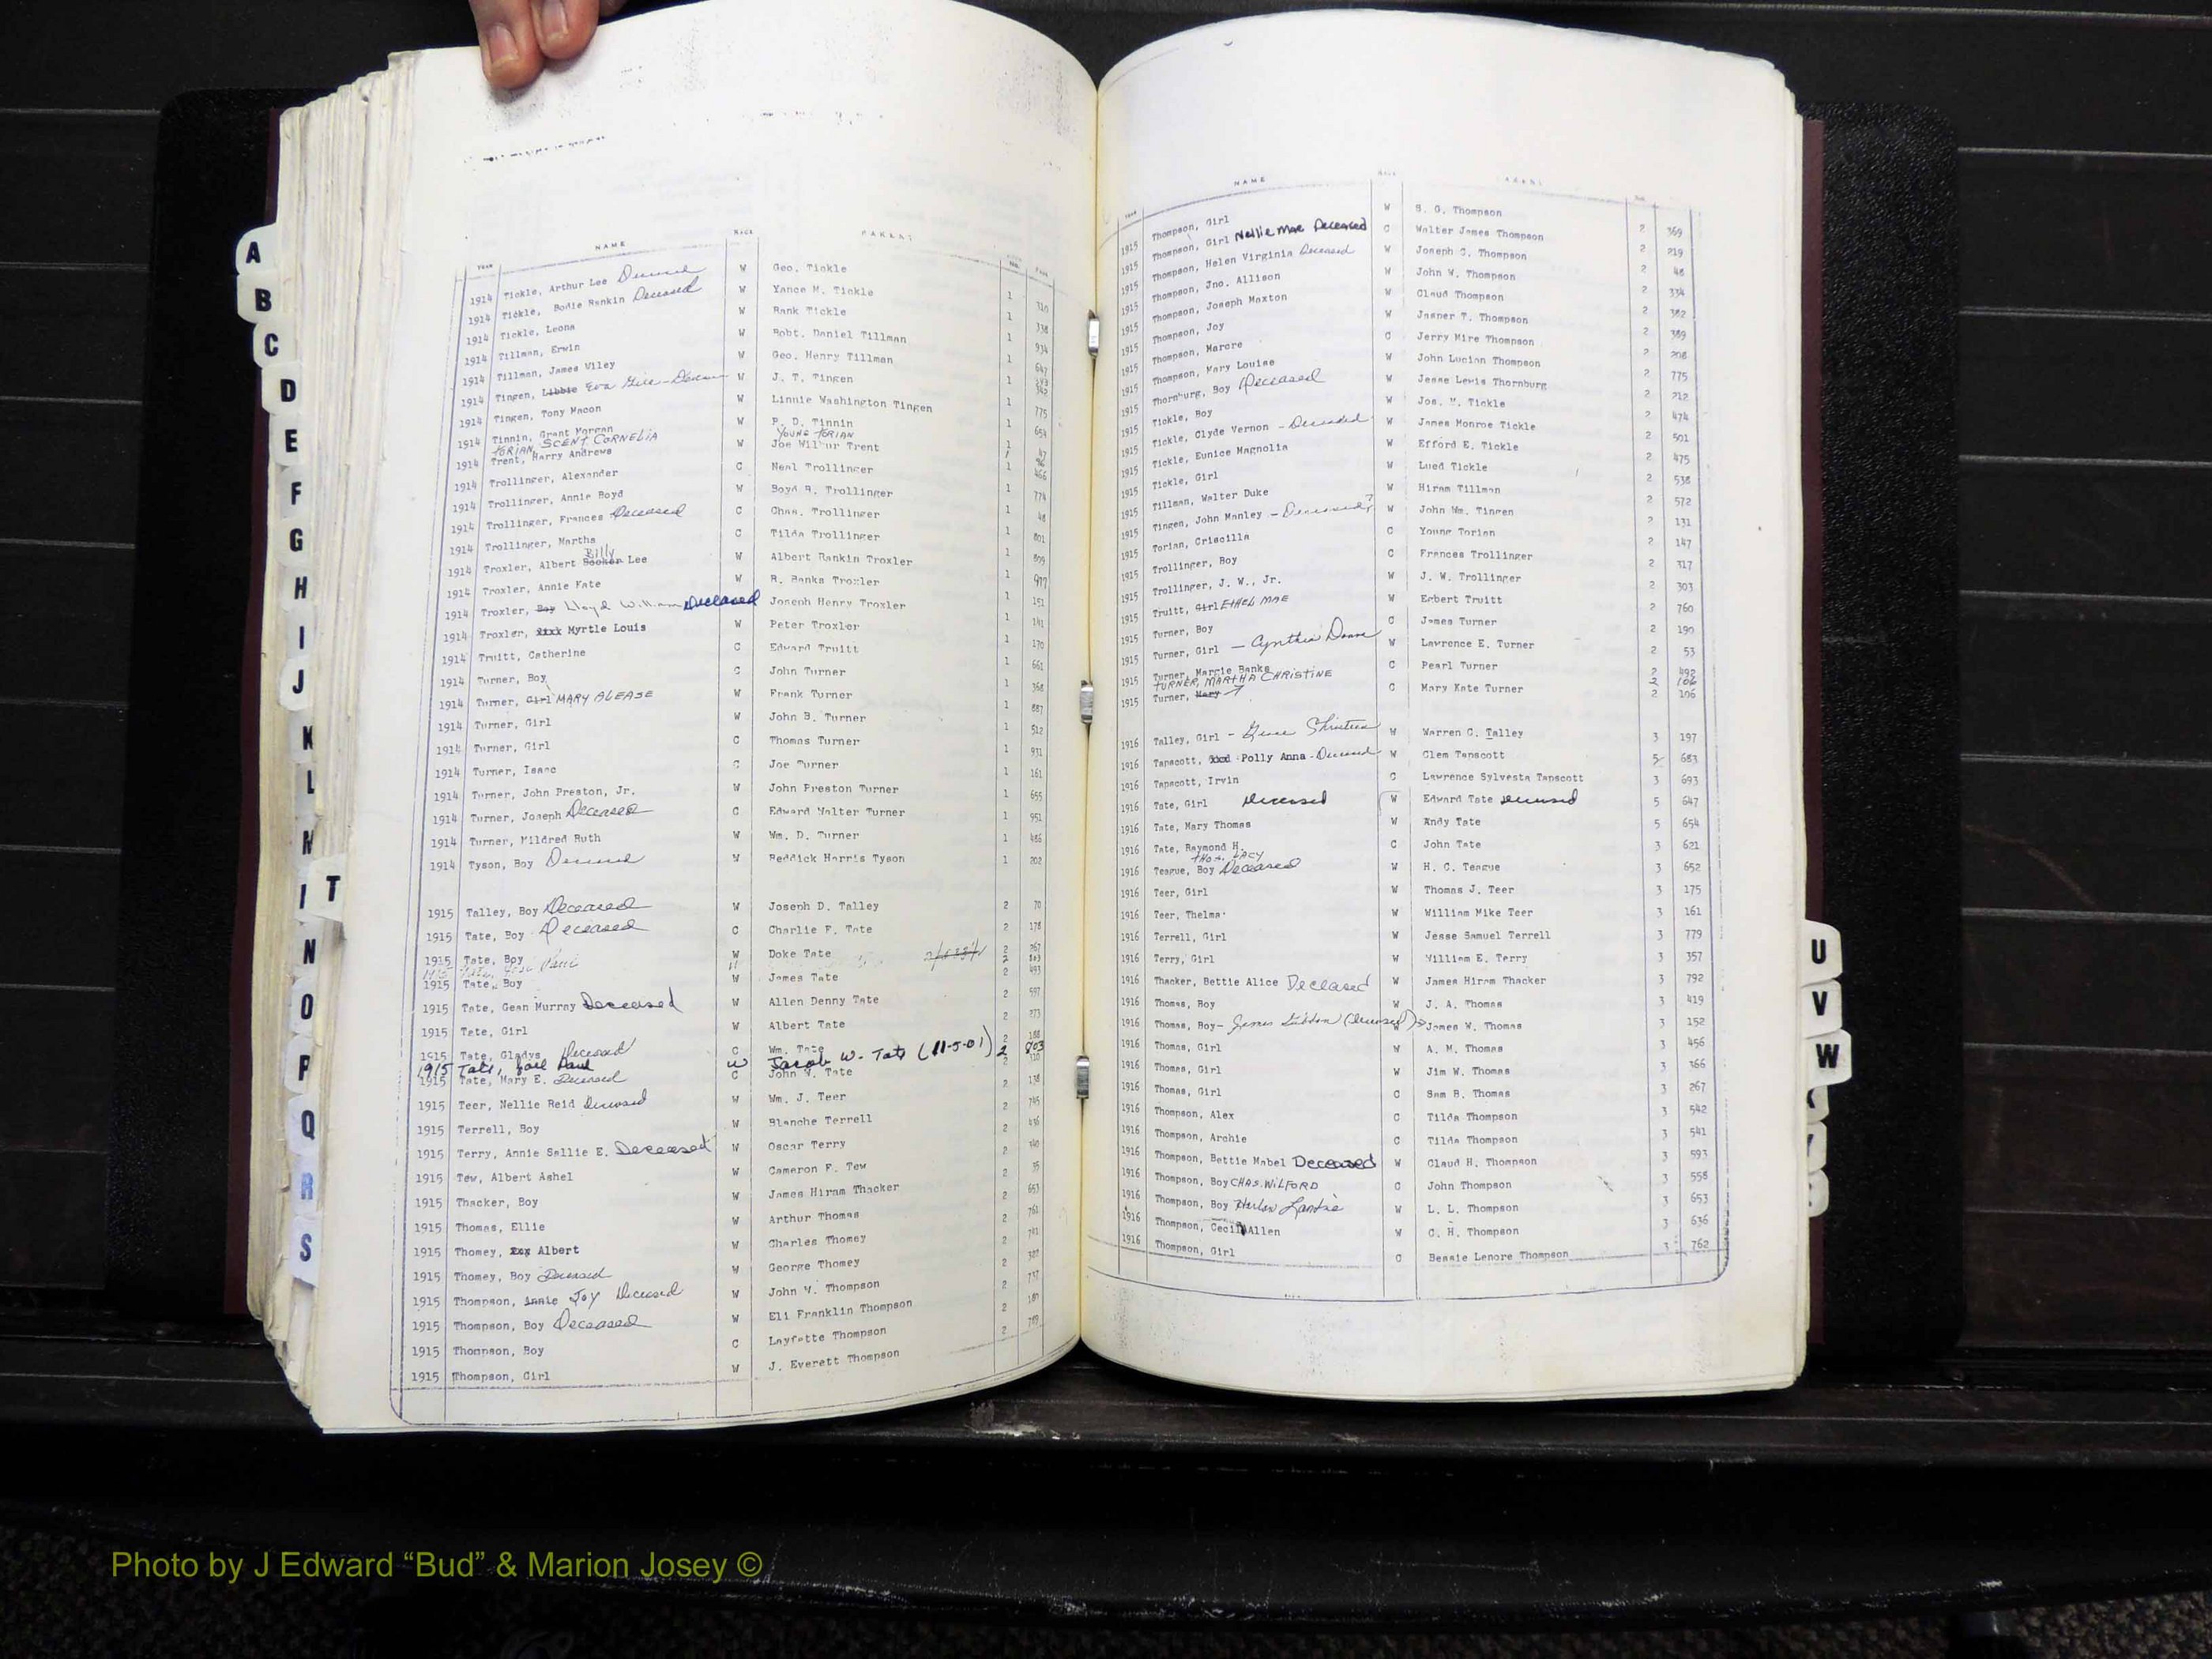 A
B
C
D
E
F
G
H
I
J
K
L
N
O
P
Q
R
S
T
YEAR NAME RACE PARENT PAGE
1914 Tickle, Arthur Lee Deceased W Geo. Tickle 1 310
1914 Tickle, Bodie Rankin Deceased W Yance M. Tickle 1 338
1914 Tickle, Leona W Bank Tickle 1 934
1914 Tillman, Erwin W Robt. Daniel Tillman 1 647
1914 Tillman, James Wiley W Geo. Henry Tillman 1
1914 Tingen, Libbie Eva W J. T. Tingen 1 342
1914 Tingen, Tony Macon W Linnie Washington Tingen 1 775
1914 Tinnin, Grant Morgan W R. D. Tinnin 1 654
TORIAN, SCENT CORNELIA YOUNG TORIAN 1
1914 Trent, Harry Andrews W Joe Wilbur Trent 1 466
1914 Trollinger, Alexander C Neal Trollinger 1 774
1914 Trollinger, Annie Boyd W Boyd R. Trollinger 1 48
1914 Trollinger, Frances Deceased C Chas. Trollinger 1 801
1914 Trollinger, Martha C Tilda Trollinger 1 809
1914 Troxler, Albert Booker Billy Lee W Albert Rankin Troxler 1 977
1914 Troxler, Annie Kate W R. Banks Troxler 1 151
1914 Troxler, Boy Lloyd William Deceased Joseph Henry Troxler 1 141
1914 Troxler, Myrtle Louis W Peter Troxler 1 170
1914 Truitt, Catherine C Edward Truitt 1 661
1914 Turner, Boy C John Turner 1 368
1914 Turner, Girl MARY ALEASE W Frank Turner 1 887
1914 Turner, Girl W John B. Turner 1 512
1914 Turner, Girl C Thomas Turner 1 931
1914 Turner, Isaac C Joe Turner 1 161
1914 Turner, John Preston, Jr. W John Preston Turner 1 655
1914 Turner, Joseph Deceased C Edward Walter Turner 1 951
1914 Turner, Mildred Ruth W Wm. D. Turner 1 486
1914 Tyson, Boy Deceased W Reddick Harris Tyson 1 202
1915 Talley, Boy Deceased W Joseph D. Talley 2 70
1915 Tate, Boy Deceased C Charlie F. Tate 2 178
1915 Tate, Boy W Doke Tate 2 367
1915 Tate, Boy W James Tate 2 493
1915 Tate, Gean Murray Deceased W Allen Denny Tate 2 597
1915 Tate, Girl W Albert Tate 2 273
1915 Tate, Gladys Deceased C Wm. Tate 2 188
1915 Tate, Joel Paul W Jacob W. Tate (11-5-01) 2 803
1915 Tate, Mary E. Deceased C John W. Tate 2 110
1915 Teer, Nellie Reid Deceased W Wm. J. Teer 2 138
1915 Terrell, Boy W Blanche Terrell 2 745
1915 Terry, Annie Sallie E. Deceased W Oscar Terry 2 436
1915 Tew, Albert Ashel W Cameron F. Tew 2 340
1915 Thacker, Boy W James Hiram Thacker 2 35
1915 Thomas, Ellie W Arthur Thomas 2 653
1915 Thomey, Albert W Charles Thomey 2 761
1915 Thomey, Boy Deceased W George Thomey 2 741
1915 Thompson, Annie Joy Deceased W John W. Thompson 2
1915 Thompson, Boy Deceased W Eli Franklin Thompson 2 737
1915 Thompson, Boy C Layfette Thompson 2 187
1915 Thompson, Girl W J. Everett Thompson 2 789
YEAR NAME RACE PARENT
1915 Thompson, Girl W S. G. Thompson 2 369
1915 Thompson, Girl Nellie Mae Deceased C Walter James Thompson 2 219
1915 Thompson, Helen Virginia Deceased W Joseph G. Thompson 2 48
1915 Thompson, Jno. Allison W John W. Thompson 2 334
1915 Thompson, Joseph Maxton W Claud Thompson 2 382
1915 Thompson, Joy W Jasper T. Thompson 2 389
1915 Thompson, Marcre C Jerry Mire Thompson 2 208
1915 Thompson, Mary Louise W John Lucian Thompson 2 775
1915 Thornburg, Boy Deceased W Jesse Lewis Thornburg 2 212
1915 Tickle, Boy W Jos. M. Tickle 2 474
1915 Tickle, Clyde Vernon - Deceased W James Monroe Tickle 2 501
1915 Tickle, Eunice Magnolia W Efford E. Tickle 2 475
1915 Tickle, Girl W Lued Tickle 2 538
1915 Tillman, Walter Duke W Hiram Tillman 2 572
1915 Tingen, John Manley - Deceased? W John Wm. Tingen 2 131
1915 Torian, Criscilla C Young Torian 2 147
1915 Trollinger, Boy C Frances Trollinger 2 317
1915 Trollinger, J. W., Jr. W J. W. Trollinger 2 303
1915 Truitt, Girl ETHEL MAE W Egbert Truitt 2 760
1915 Turner, Boy C James Turner 2 190
1915 Turner, Girl - Cynthia W Lawrence E. Turner 2 53
1915 Turner, Margie Banks C Pearl Turner 2 492
TURNER, MARTHA CHRISTINE 2 106
1915 Turner, Mary C Mary Kate Turner 2 106
1916 Talley, Girl - W Warren C. Talley 3 197
1916 Tapscott, Polly Anna - Deceased W Clem Tapscott 5 683
1916 Tapscott, Irvin C Lawrence Sylvesta Tapscott 3 693
1916 Tate, Girl Deceased W Edward Tate Deceased 5 647
1916 Tate, Mary Thomas W Andy Tate 5 654
1916 Tate, Raymond H. C John Tate 3 621
THOS. LACY
1916 Teague, Boy Deceased W H. C. Teague 3 652
1916 Teer, Girl W Thomas J. Teer 3 175
1916 Teer, Thelma W William Mike Teer 3 161
1916 Terrell, Girl W Jesse Samuel Terrell 3 779
1916 Terry, Girl W William E. Terry 3 357
1916 Thacker, Bettie Alice Deceased W James Hiram Thacker 3 792
1916 Thomas, Boy W J. A. Thomas 3 419
1916 Thomas, Boy - James (Deceased) W James W. Thomas 3 152
1916 Thomas, Girl W A. M. Thomas 3 456
1916 Thomas, Girl W Jim W. Thomas 3 366
1916 Thomas, Girl C Sam B. Thomas 3 267
1916 Thompson, Alex C Tilda Thompson 3 542
1916 Thompson, Archie C Tilda Thompson 3 541
1916 Thompson, Bettie Mabel Deceased W Claud H. Thompson 3 593
1916 Thompson, Boy CHAS. WILFORD C John Thompson 3 558
1916 Thompson, Boy Harlow W L. L. Thompson 3 653
1916 Thompson, Cecil Allen W C. H. Thompson 3 636
1916 Thompson, Girl C Bessie Lenore Thompson 3 762
U
V
W
Photo by J Edward “Bud” & Marion Josey ©